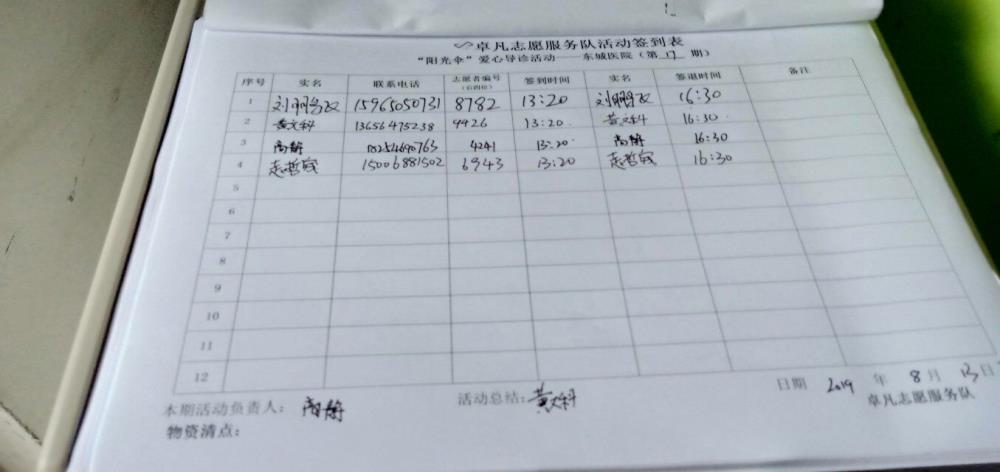 卓凡志愿服务队活动签到表
“阳光伞”爱心导诊活动——东城医院（第 17 期）
序号 实名 联系电话 志愿者编号（后四位） 签到时间 实名 签退时间 备注
1 刘鹏 15965050731 8782 13:20 刘鹏 16:30
2 黄文科 13656475238 9926 13:20 黄文科 16:30
3 高静 18254690763 4241 13:20 高静 16:30
4 15006881502 6943 13:20 16:30
5
6
7
8
9
10
11
12
本期活动负责人： 高静 活动总结： 黄文科 日期 2019 年 8 月 13 日
物资清点： 卓凡志愿服务队